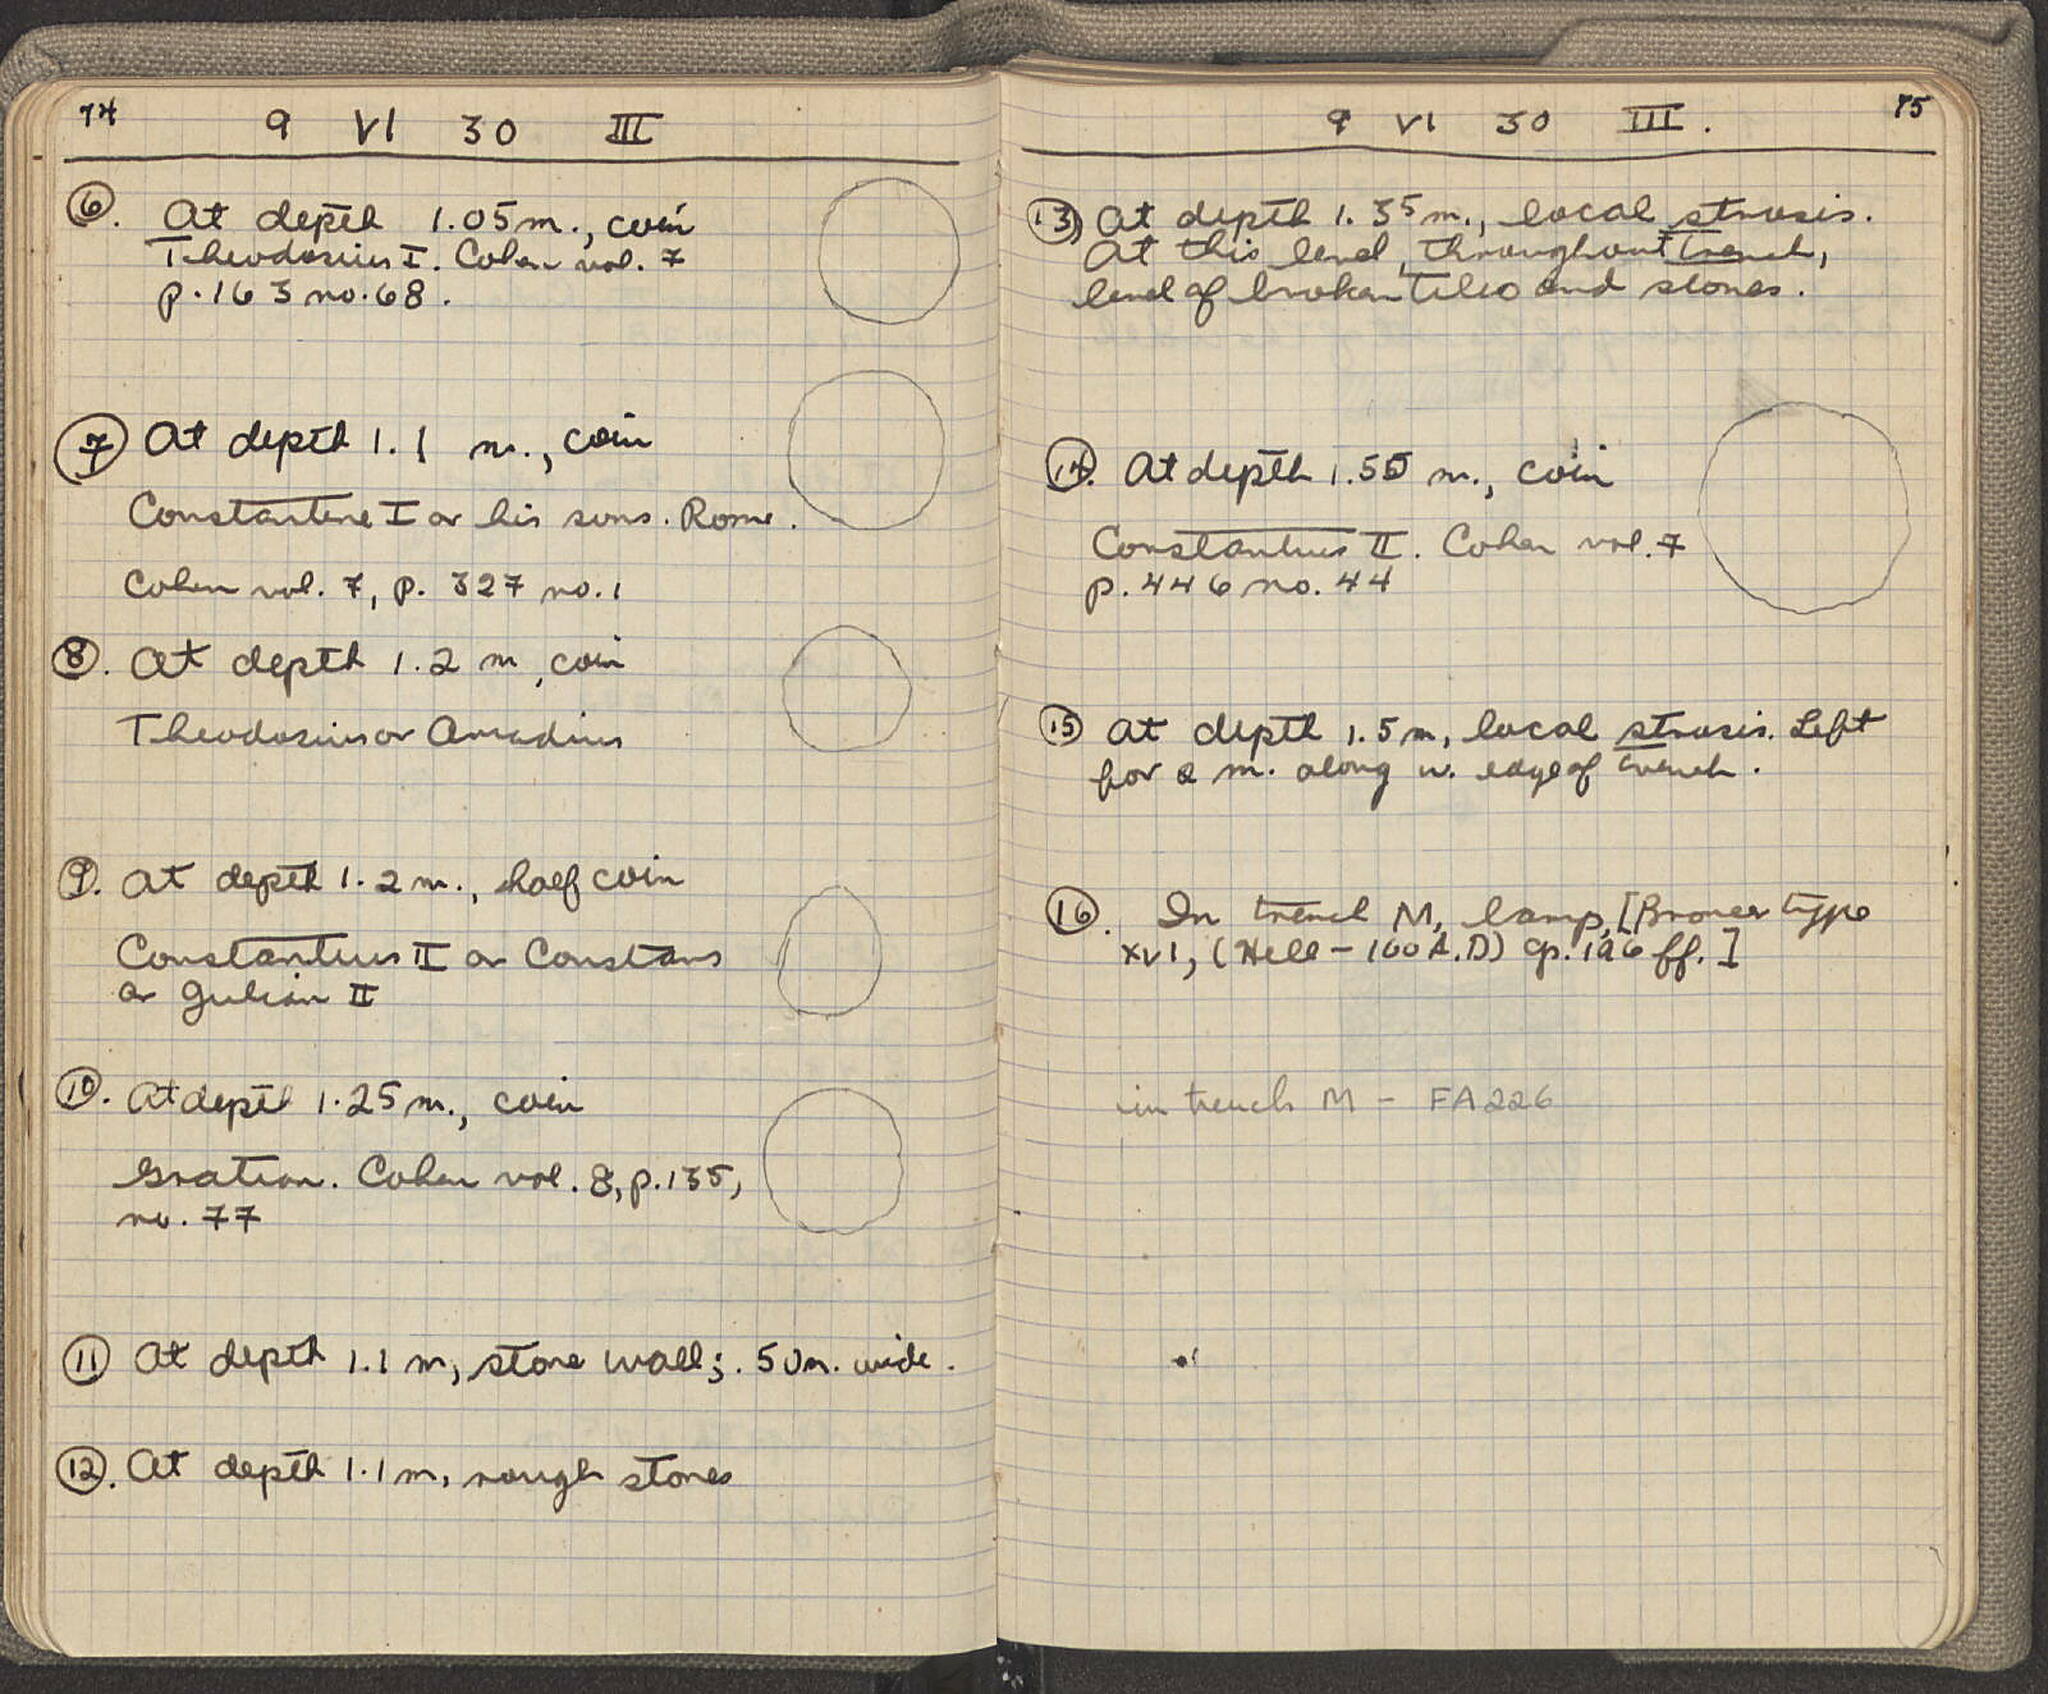 74
9 VI 30 III
6. At depth 1.05 m., coin
Theodosius I. Cohen vol. 7
p. 163 no. 68.
7 At depth 1.1 m., coin
Constantine I or his sons. Rome.
Cohen vol. 7, p. 327 no. 1
8. At depth 1.2 m, coin
Theodosius or Arcadius
9. At depth 1.2 m., half coin
Constantius II or Constans
or Julian II
10. At depth 1.25 m., coin
Gratian. Cohen vol. 8, p. 135,
no. 77
11 At depth 1.1 m, stone wall; .50 m. wide.
12. At depth 1.1 m, rough stones
75
9 VI 30 III.
13) At depth 1.35 m., local strosis.
At this level, throughout trench,
level of broken tiles and stones.
14. At depth 1.55 m., coin
Constantius II. Cohen vol. 7
p. 446 no. 44
15 At depth 1.5 m, local strosis. Left
for 2 m. along w. edge of trench.
16. In trench M, lamp, [Broneer type
XVI, (Hell - 100 A.D) cp. 196 ff.]
in trench M - FA226